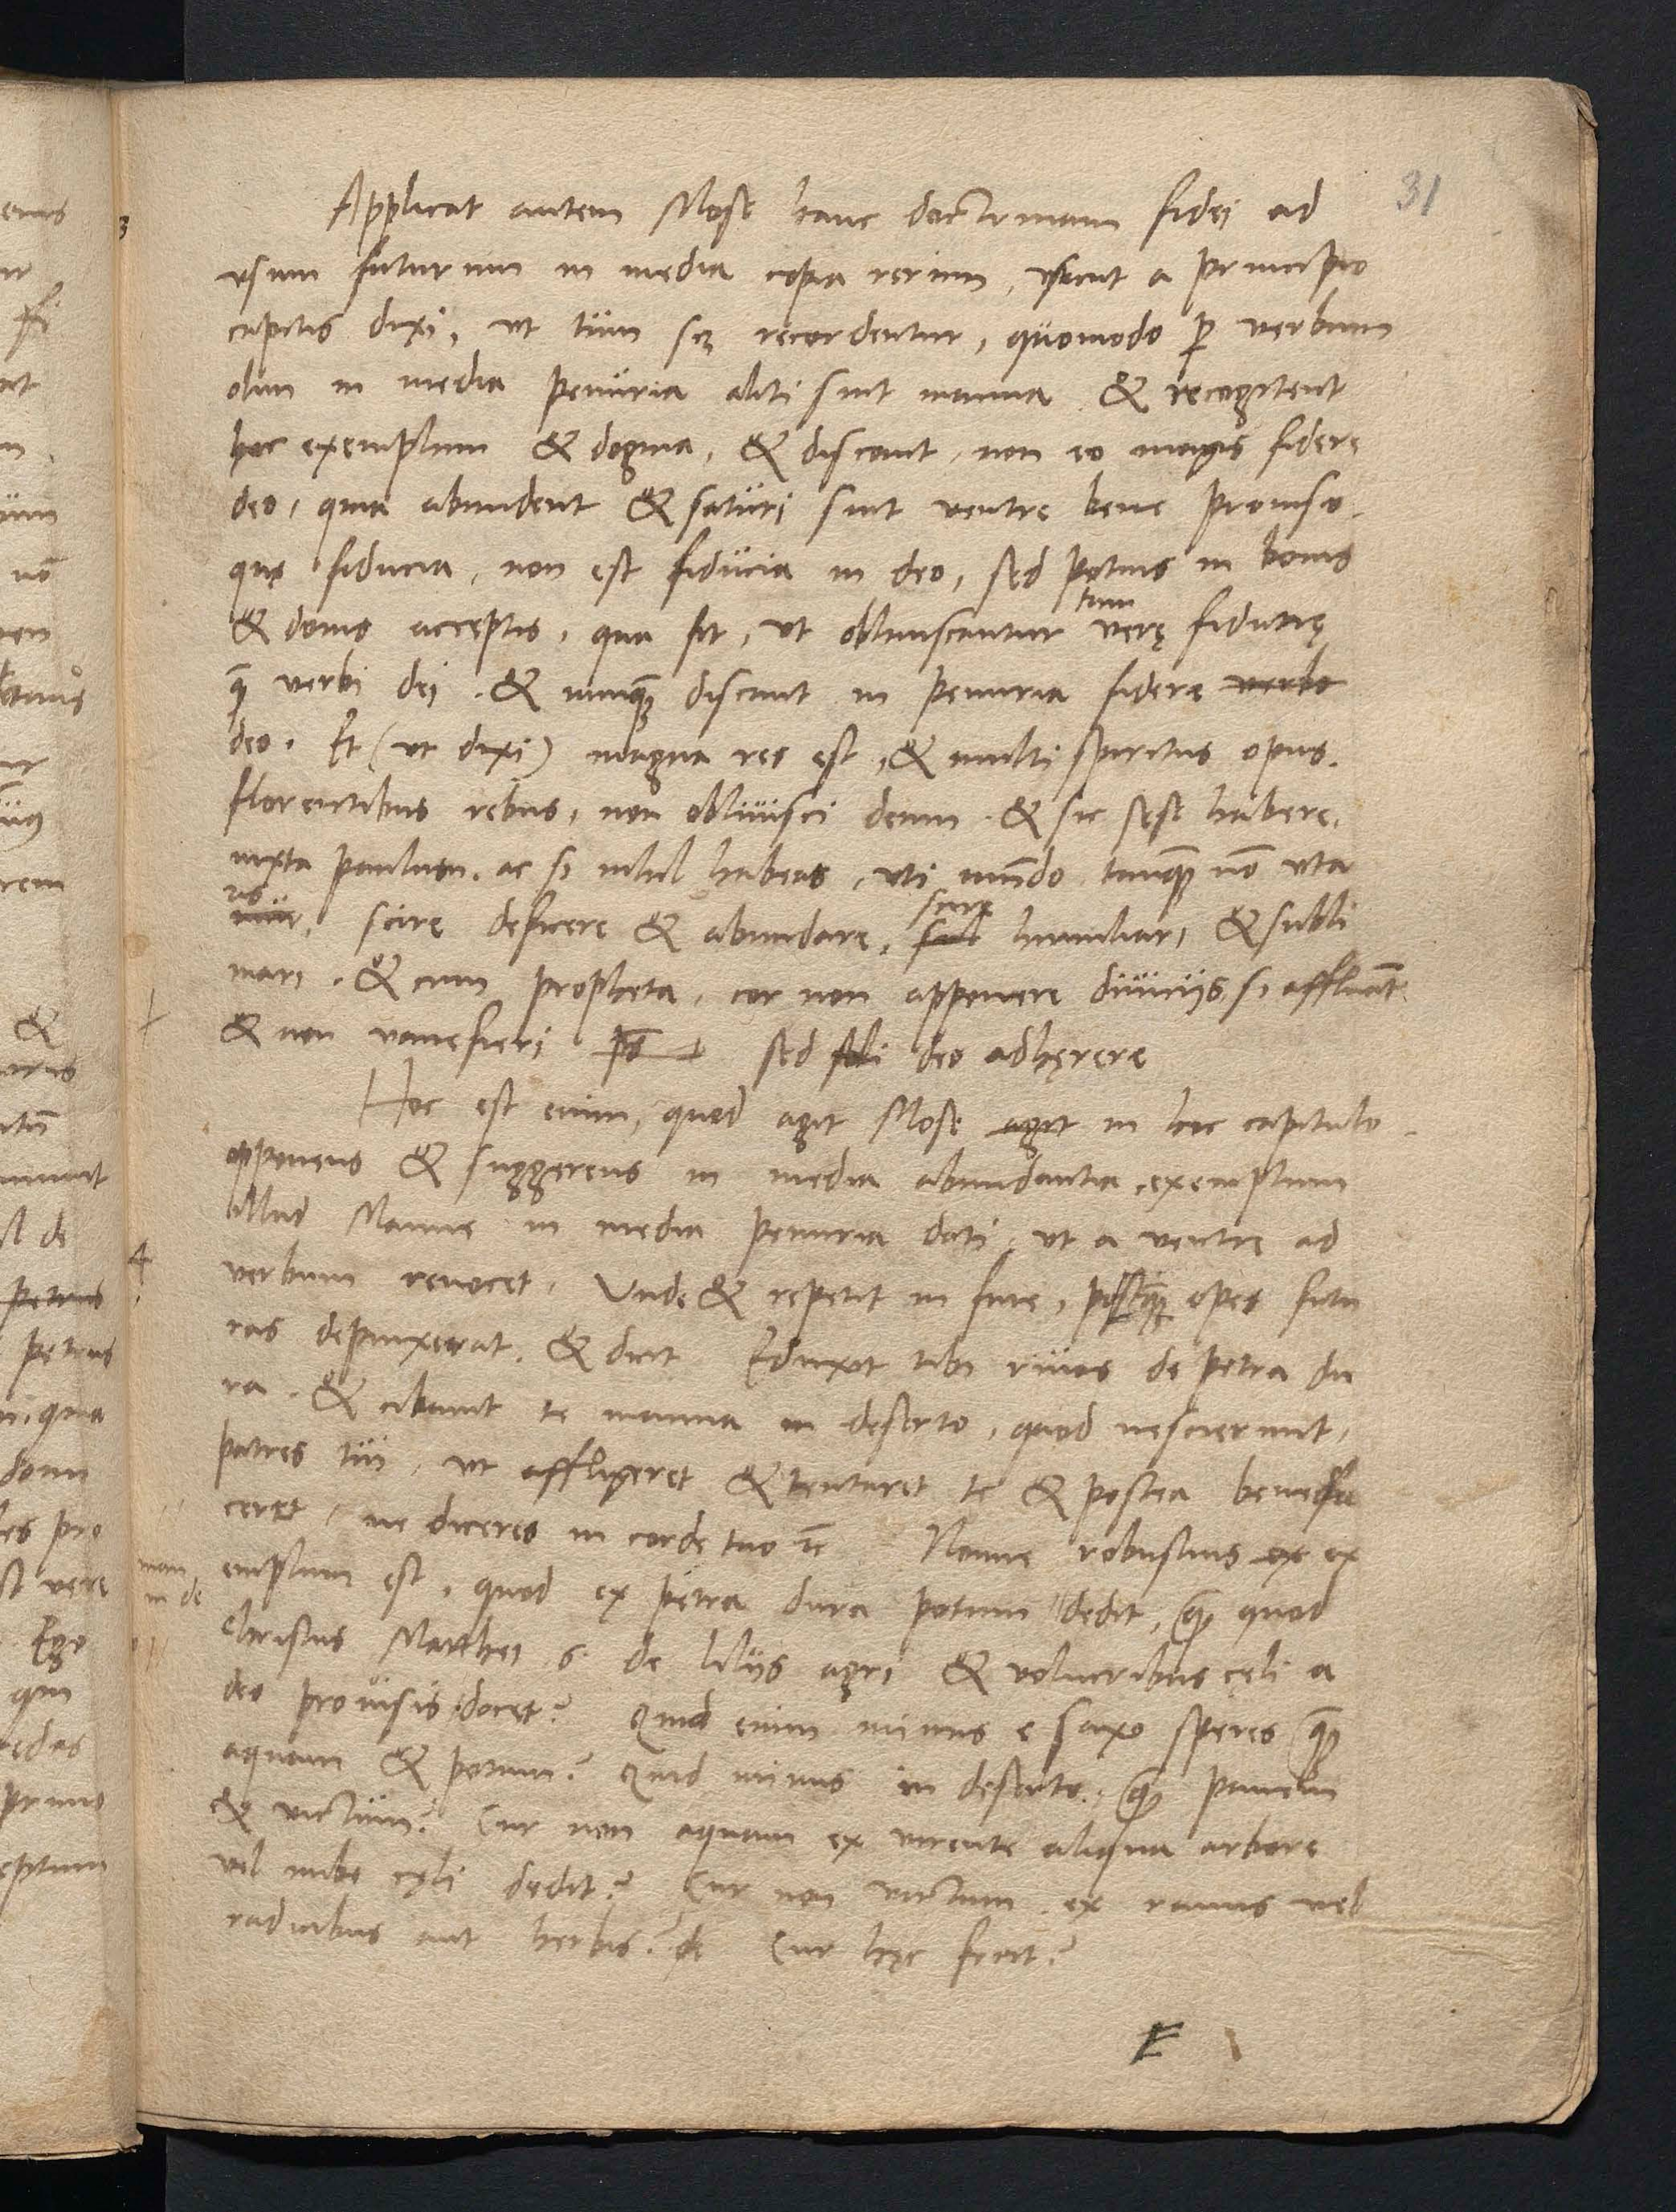 31
Applicat autem Mose hanc doctrinam fidei ad
usum futurum in media copia rerum, sicut a principio
capitis dixi, ut tum scz recordentur, quomodo per verbum
olim in media penuria aliti sint manna. & recogitent
hoc exemplum & dogma, & discant, non eo magis fidere
deo, quia abundent & saturi sint ventre bene proviso.
quę fiducia, non est fiducia in deo, sed potius in bonis
& donis acceptis, qua fit, ut obliviscantur tum verę fidutię
qȝ verbi dei. & nunqȝ discant in penuria fidere verbo
deo. Et (ut dixi) magna res est, & multi spiritus opus.
florentibus rebus, non oblivisci deum. & sic sese habere,
iuxta paulum. ac si nihil habeas, uti mūdo tanqȝ nō uta
ris, scire deficere & abundare, scire humiliari & subli
mari. & cum propheta, cor non apponere divicijs, si affluāt
& non vanefieri sed soli deo adhęrere
Hoc est enim, quod agit Mose agit in hoc capitulo
opponens & suggerens in media abundantia, exemplum
illud Manne in media penuria dati, ut a ventre ad
4
verbum revocet. Unde & repetit in fine, postqȝ opes futu
ras depinxerat. & dicit Eduxit tibi rivos de petra du
ra. & cibavit te manna in deserto, quod nescierunt,
patres tui, ut affligeret & tentaret te & postea benefa
ceret, ne diceres in corde tuo ⁊c Nonne robustius ex ex
man
in de
emplum est, quod ex petra dura potum dedit, qȝ quod
Christus Matthei 6. de lilijs agri & volucribus cęli a
deo provisis docet? Quid enim minus e saxo speres qȝ
aquam & potum? Quid minus in deserto, qȝ panem
& victum? Cur non aquam ex virente aliqua arbore
vel nube cęli dedit? Cur non victum ex ramis vel
radicibus aut herbis? de Cur hęc fecit?
E